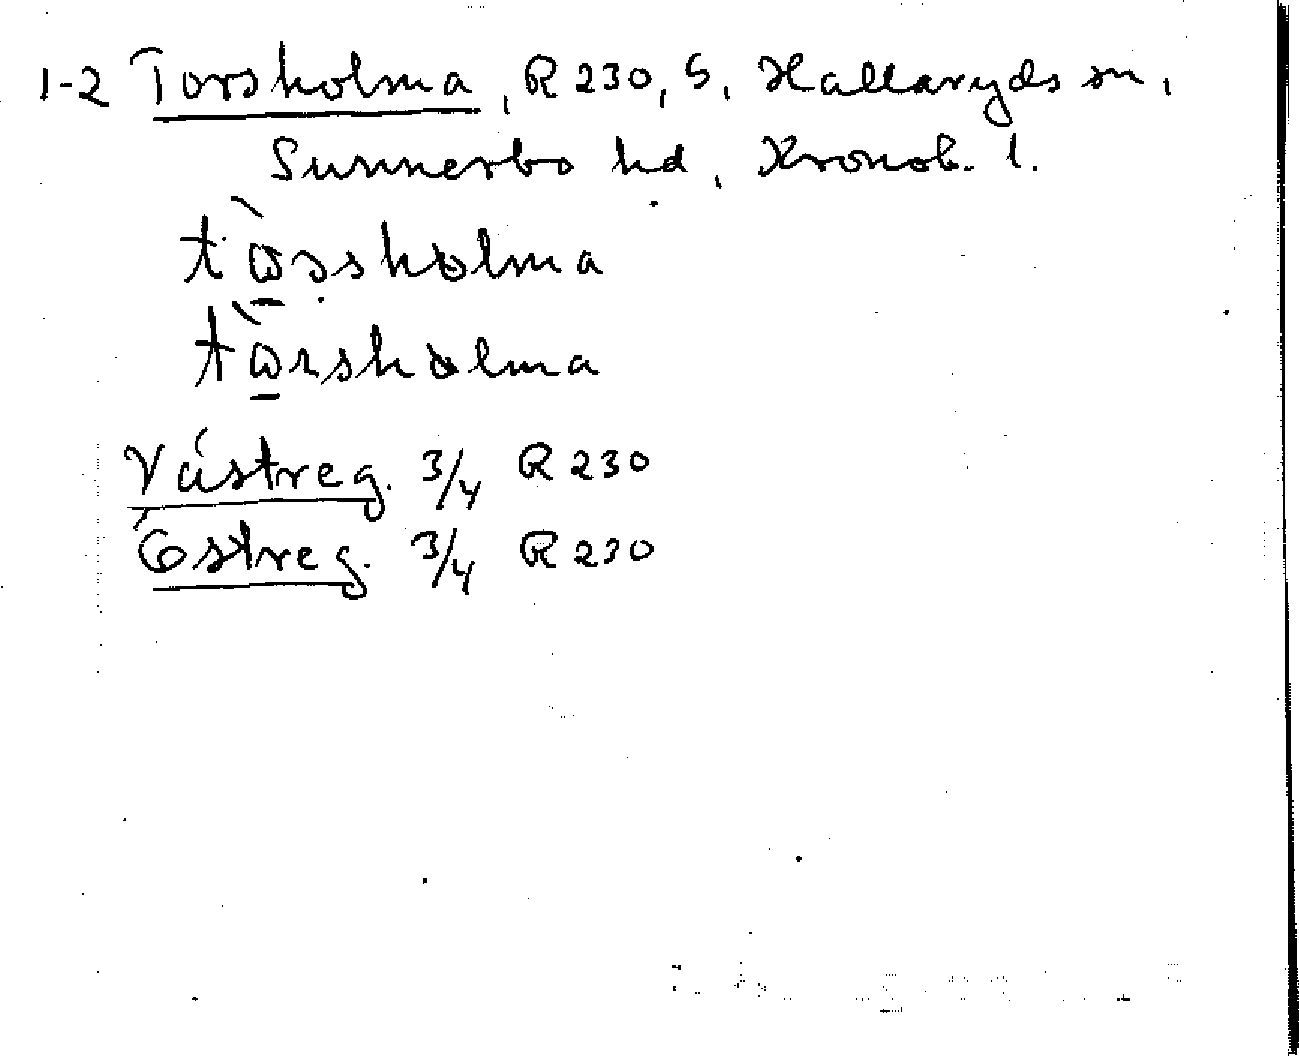 1-2 Torsholma, R 230, S. Hallaryds sn,
Sunnerbo hd, Kronob. l.
Västreg. 3/4 R 230
Östreg. 3/4 R 230